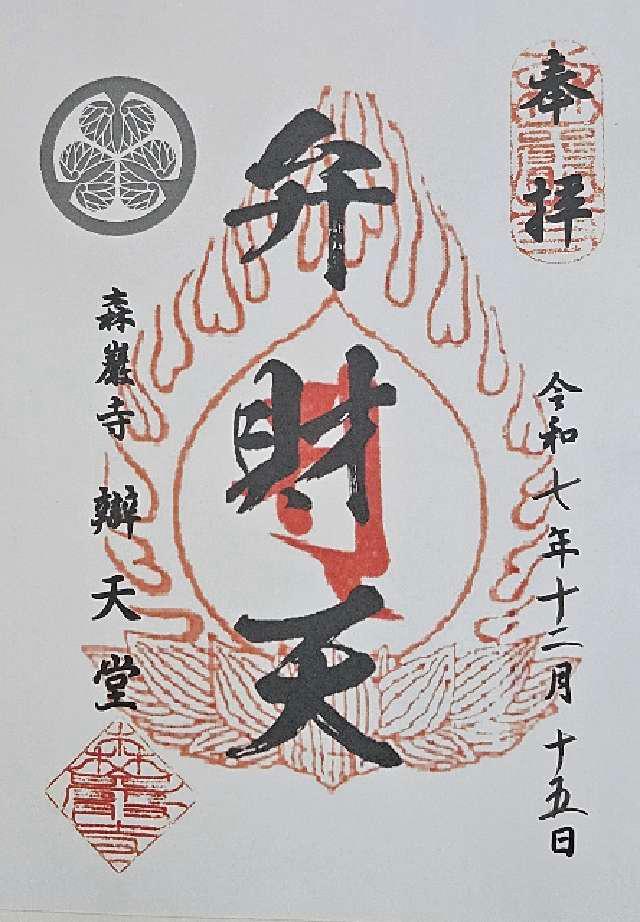 奉拝
令和七年十二月十五日
弁財天
森巖寺 辦天堂